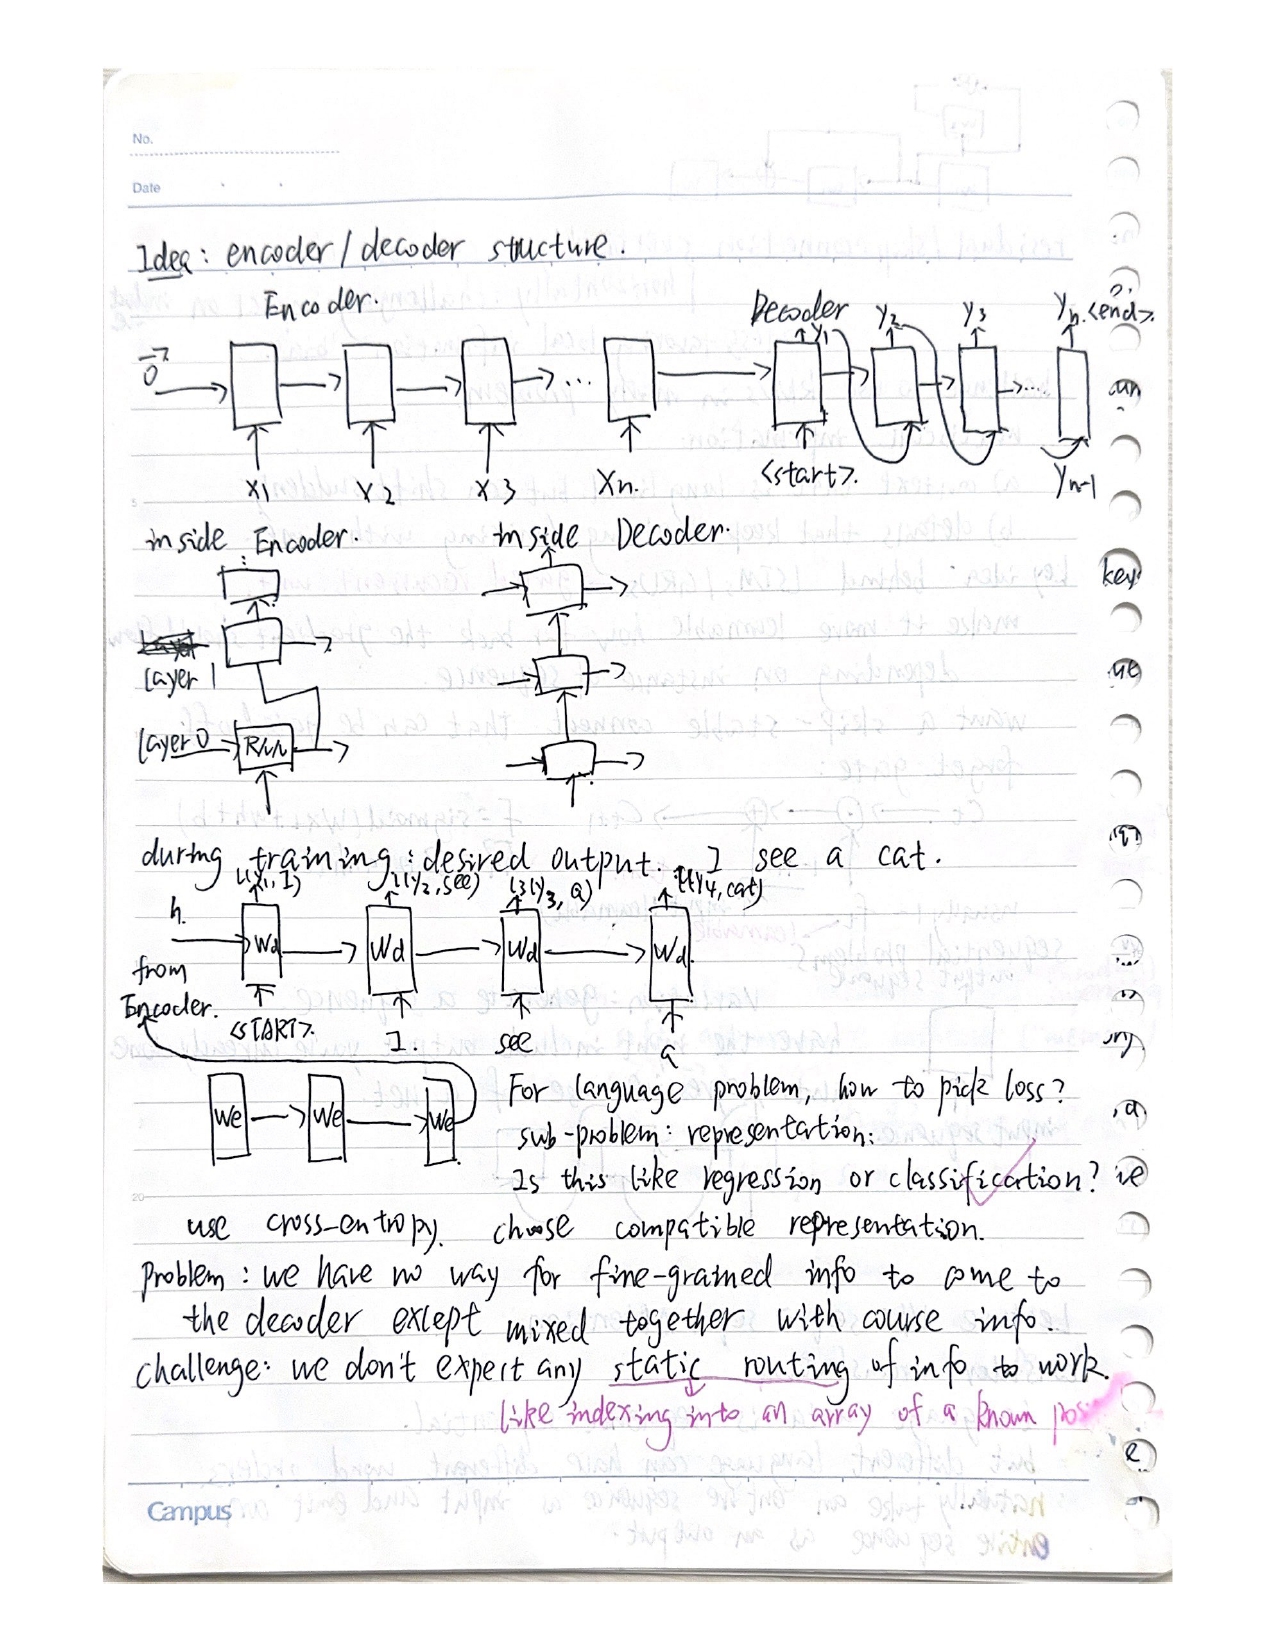 No.
Date
Idea: encoder/decoder structure.
Encoder.
Decoder
y1 y2 y3 yn. <end>.
0
...
...
x1 x2 x3 xn.
<start>.
yn-1
inside Encoder.
inside Decoder.
Layer 1
Layer 0
RNN
during training: desired output. I see a cat.
L(y1, I) L(y2, see) L3(y3, a) L(y4, cat)
h.
Wd Wd Wd Wd
from
Encoder.
<START>. I. see a
We We We
For language problem, how to pick loss?
sub-problem: representation:
Is this like regression or classification?
use cross-entropy. choose compatible representation.
Problem: we have no way for fine-grained info to come to
the decoder exlept mixed together with course info.
challenge: we don't expect any static routing of info to work.
like indexing into an array of a known pos
key
20
Campus